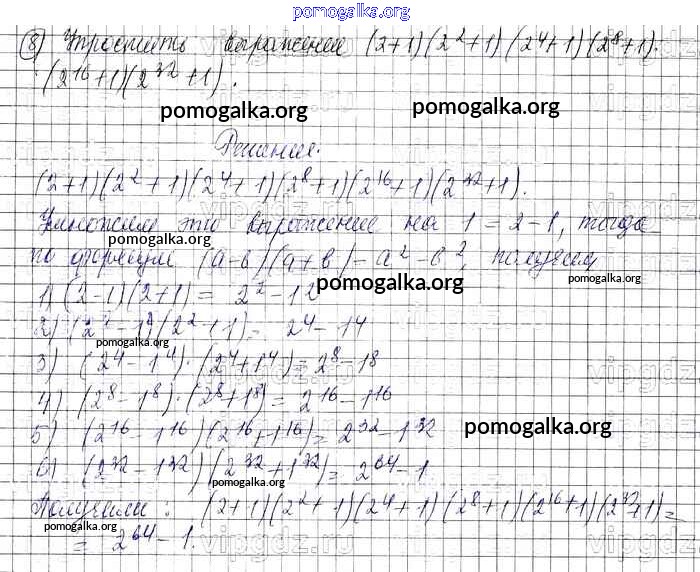 pomogalka.org
8) Упростить выражение (2+1)(2²+1)(2⁴+1)(2⁸+1)·
·(2¹⁶+1)(2³²+1).
pomogalka.org pomogalka.org
Решение:
(2+1)(2²+1)(2⁴+1)(2⁸+1)(2¹⁶+1)(2³²+1).
Умножим это выражение на 1 = 2-1, тогда
pomogalka.org
по формуле (a-b)(a+b)=a²-b², получим
pomogalka.org pomogalka.org
1) (2-1)(2+1) = 2²-1²
2) (2²-1²)(2²+1) = 2⁴-1⁴
pomogalka.org
3) (2⁴-1⁴)·(2⁴+1⁴)=2⁸-1⁸
4) (2⁸-1⁸)·(2⁸+1⁸)=2¹⁶-1¹⁶
5) (2¹⁶-1¹⁶)(2¹⁶+1¹⁶)=2³²-1³²
pomogalka.org
6) (2³²-1³²)(2³²+1³²)=2⁶⁴-1
pomogalka.org
Получили: (2+1)(2²+1)(2⁴+1)(2⁸+1)(2¹⁶+1)(2³²+1)=
pomogalka.org
= 2⁶⁴-1.
vipgdz.ru
pomogalka.org